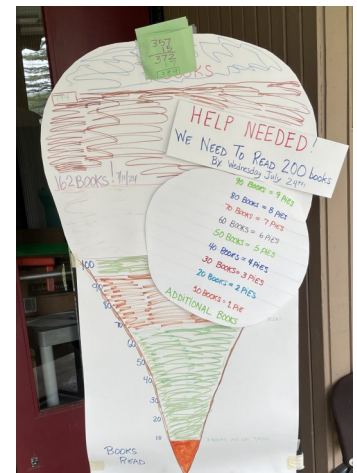 357
15
372
BOOKS
HELP NEEDED!
WE NEED TO READ 200 books
By Wednesday July 24th
162 BOOKS! 7/11/24
90 BOOKS = 9 PIES
80 BOOKS = 8 PIES
70 BOOKS = 7 PIES
60 BOOKS = 6 PIES
50 BOOKS = 5 PIES
40 BOOKS = 4 PIES
30 BOOKS = 3 PIES
20 BOOKS = 2 PIES
10 BOOKS = 1 PIE
ADDITIONAL BOOKS
100
90
80
70
60
50
40
30
20
10
BOOKS
READ